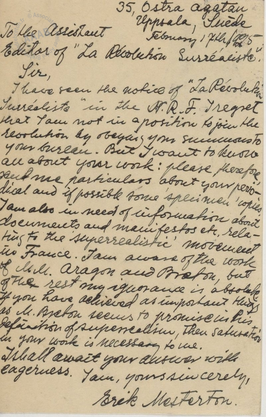 35, Östra Ågatan
Uppsala, Suède
February 17th/1925
To the Assistant
Editor of "La Révolution Surréaliste".
Sir,
I have seen the notice of "La Révolution
Surréaliste" in the N.R.F. I regret
that I am not in a position to join the
revolution by obeying your summons to
your bureau. But I want to know
all about your work: please, therefore,
send me particulars about your perio-
dical and if possible some specimen copies.
I am also in need of information about
documents and manifestos etc. rela-
ting to the superrealistic movement
in France. I am aware of the work
of M.M. Aragon and Breton, but
of the rest my ignorance is absolute.
If you have achieved as important things
as M. Breton seems to promise in his
definition of superrealism, then saturation
in your work is necessary to me.
I shall await your answer with
eagerness. I am, yours sincerely,
Erik Mesterton.